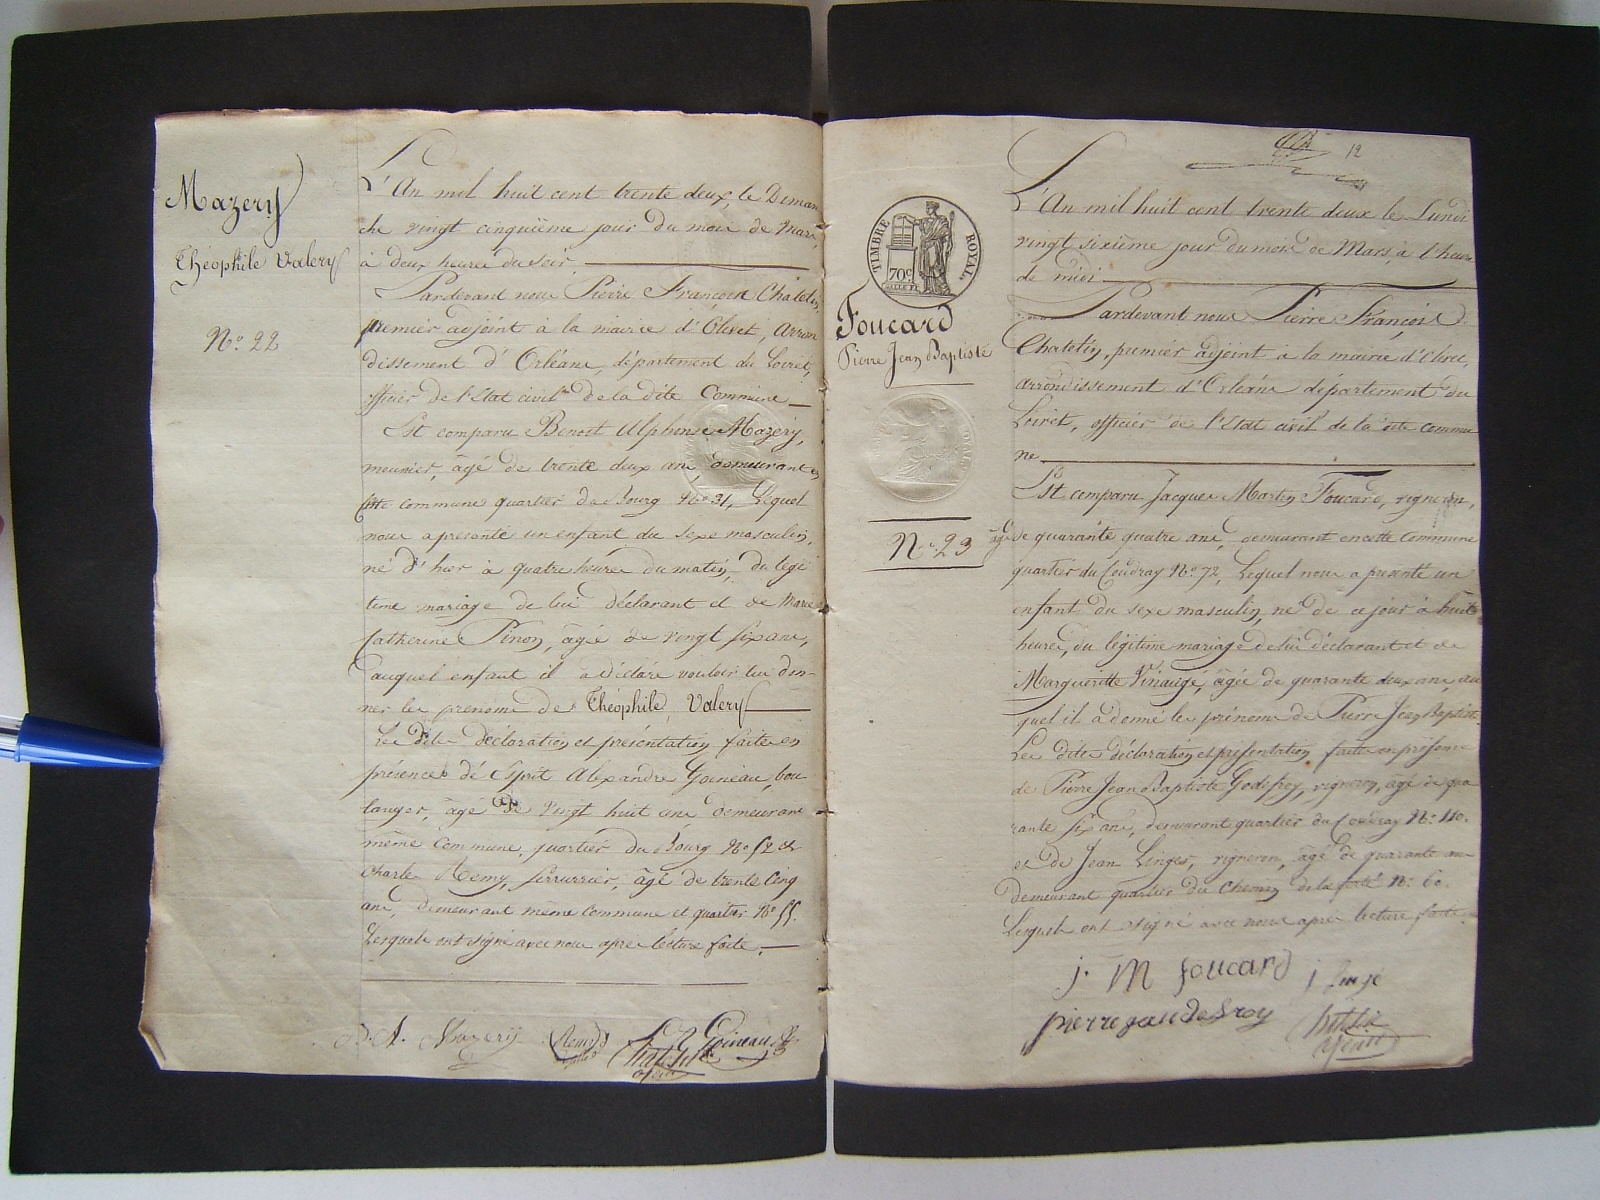 Mazery
Théophile Valery
N° 22
L'An mil huit cent trente deux, le Diman
che vingt cinquième jour du mois de Mars,
à deux heures du soir,
Pardevant nous Pierre François Chatelin,
premier adjoint à la mairie d'Olivet, Arron
dissement d'Orléans, département du Loiret,
officier de l'Etat civil de la dite Commune
Est comparu Benoit Alphonse Mazery,
meunier, âgé de trente deux ans, demeurant en
cette commune quartier du Bourg N° 31, Lequel
nous a présenté un enfant du sexe masculin,
né d'hier à quatre heures du matin, du légi
time mariage de lui déclarant et de Marie
Catherine Pinon, âgée de vingt six ans,
auquel enfant il a déclaré vouloir lui don-
ner les prénoms de Théophile Valery
Les dites déclaration et présentation faites en
présence d'Esprit Alexandre Goineau, bou
langer, âgé de vingt huit ans demeurant
même Commune, quartier du Bourg N° 52 et
Charles Remy, serrurier, âgé de trente cinq
ans, demeurant même commune et quartier N° 55.
Lesquels ont signé avec nous après lecture faite.
A. Mazery Remy Goineau
12
TIMBRE ROYAL
70c
Foucard
Pierre Jean Baptiste
N° 23
L'An mil huit cent trente deux le Lundi
vingt sixième jour du mois de Mars, à l'heure
de midi
Pardevant nous Pierre François
Chatelin, premier adjoint à la mairie d'Olivet,
arrondissement d'Orléans département du
Loiret, officier de l'Etat civil de la dite commu
ne
Est comparu Jacques Martin Foucard, vigneron,
âgé de quarante quatre ans, demeurant en cette Commune
quartier du Coudray N° 72, Lequel nous a présenté un
enfant du sexe masculin, né de ce jour à huit
heures, du légitime mariage de lui déclarant et de
Marguerite Vinauge, âgée de quarante deux ans, au
quel il a donné les prénoms de Pierre Jean Baptiste.
Les dites déclaration et présentation faites en présence
de Pierre Jean Baptiste Godefroy, vigneron, âgé de qua
rante six ans, demeurant quartier du Coudray N° 110.
et de Jean Linger, vigneron, âgé de quarante ans
demeurant quartier du Chemin de la ferté N° 60.
Lesquels ont signé avec nous après lecture faite.
j. M foucard j linge
pierre gaudefroy